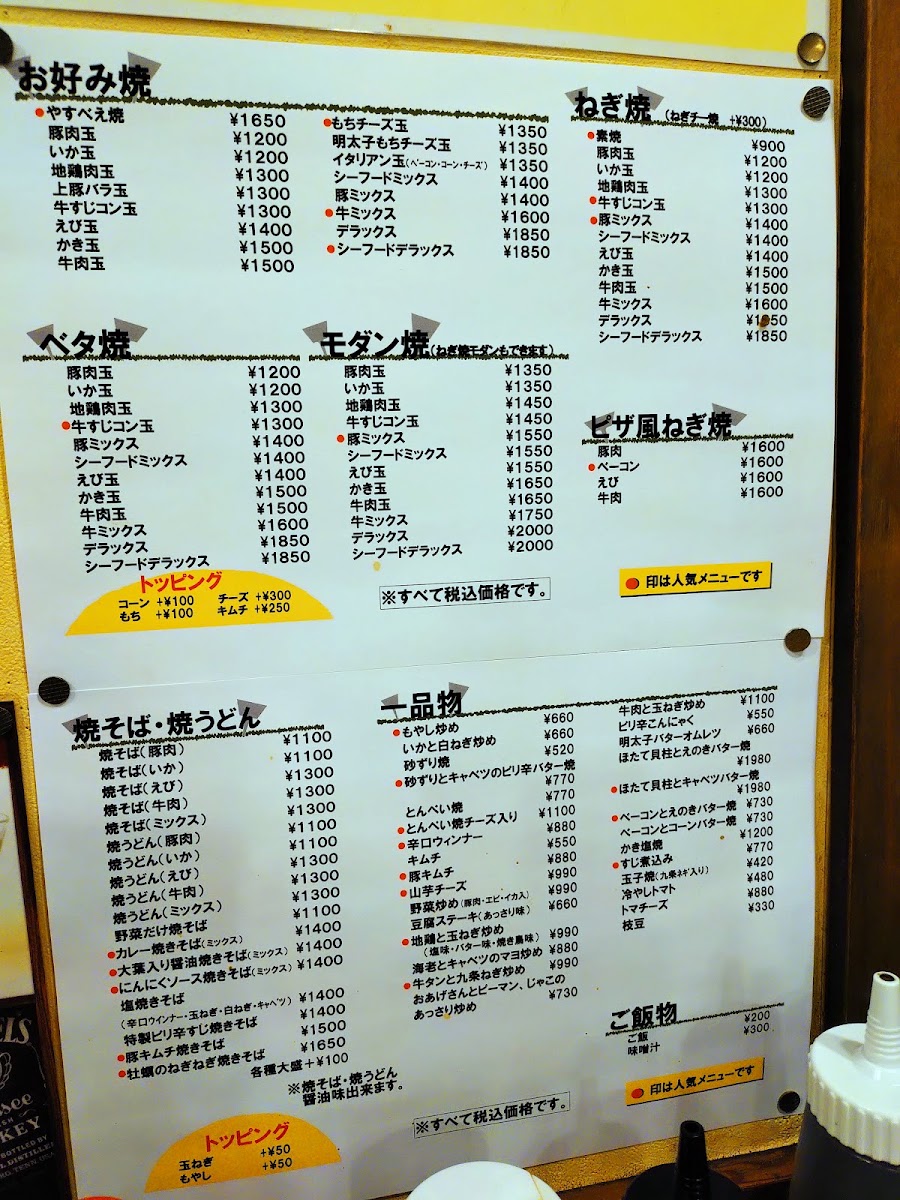 お好み焼
やすべえ焼 ¥1650
豚肉玉 ¥1200
いか玉 ¥1200
地鶏肉玉 ¥1300
上豚バラ玉 ¥1300
牛すじコン玉 ¥1300
えび玉 ¥1400
かき玉 ¥1500
牛肉玉 ¥1500
もちチーズ玉 ¥1350
明太子もちチーズ玉 ¥1350
イタリアン玉(ベーコン・コーン・チーズ) ¥1350
シーフードミックス ¥1400
豚ミックス ¥1400
牛ミックス ¥1600
デラックス ¥1850
シーフードデラックス ¥1850
ねぎ焼 (ねぎチー焼 +¥300)
素焼 ¥900
豚肉玉 ¥1200
いか玉 ¥1200
地鶏肉玉 ¥1300
牛すじコン玉 ¥1300
豚ミックス ¥1400
シーフードミックス ¥1400
えび玉 ¥1400
かき玉 ¥1500
牛肉玉 ¥1500
牛ミックス ¥1600
デラックス ¥1850
シーフードデラックス ¥1850
ベタ焼
豚肉玉 ¥1200
いか玉 ¥1200
地鶏肉玉 ¥1300
牛すじコン玉 ¥1300
豚ミックス ¥1400
シーフードミックス ¥1400
えび玉 ¥1400
かき玉 ¥1500
牛肉玉 ¥1500
牛ミックス ¥1600
デラックス ¥1850
シーフードデラックス ¥1850
モダン焼(ねぎ焼モダンもできます)
豚肉玉 ¥1350
いか玉 ¥1350
地鶏肉玉 ¥1450
牛すじコン玉 ¥1450
豚ミックス ¥1550
シーフードミックス ¥1550
えび玉 ¥1550
かき玉 ¥1650
牛肉玉 ¥1650
牛ミックス ¥1750
デラックス ¥2000
シーフードデラックス ¥2000
ピザ風ねぎ焼
豚肉 ¥1600
ベーコン ¥1600
えび ¥1600
牛肉 ¥1600
トッピング
コーン +¥100 チーズ +¥300
もち +¥100 キムチ +¥250
※すべて税込価格です。
印は人気メニューです
焼そば・焼うどん
焼そば(豚肉) ¥1100
焼そば(いか) ¥1100
焼そば(えび) ¥1300
焼そば(牛肉) ¥1300
焼そば(ミックス) ¥1300
焼うどん(豚肉) ¥1100
焼うどん(いか) ¥1100
焼うどん(えび) ¥1300
焼うどん(牛肉) ¥1300
焼うどん(ミックス) ¥1300
野菜だけ焼そば ¥1100
カレー焼きそば(ミックス) ¥1400
大葉入り醤油焼きそば(ミックス) ¥1400
にんにくソース焼きそば(ミックス) ¥1400
塩焼きそば
(辛口ウインナー・玉ねぎ・白ねぎ・キャベツ) ¥1400
特製ピリ辛すじ焼きそば ¥1400
豚キムチ焼きそば ¥1500
牡蠣のねぎねぎ焼きそば ¥1650
各種大盛+¥100
※焼そば・焼うどん
醤油味出来ます。
トッピング
玉ねぎ +¥50
もやし +¥50
一品物
もやし炒め ¥660
いかと白ねぎ炒め ¥660
砂ずり焼 ¥520
砂ずりとキャベツのピリ辛バター焼 ¥770
とんぺい焼 ¥770
とんぺい焼チーズ入り ¥1100
辛口ウィンナー ¥880
キムチ ¥550
豚キムチ ¥880
山芋チーズ ¥990
野菜炒め(豚肉・エビ・イカ入) ¥990
豆腐ステーキ(あっさり味) ¥660
地鶏と玉ねぎ炒め
(塩味・バター味・焼き鳥味) ¥990
海老とキャベツのマヨ炒め ¥880
牛タンと九条ねぎ炒め ¥990
おあげさんとピーマン、じゃこの
あっさり炒め ¥730
牛肉と玉ねぎ炒め ¥1100
ピリ辛こんにゃく ¥550
明太子バターオムレツ ¥660
ほたて貝柱とえのきバター焼
¥1980
ほたて貝柱とキャベツバター焼
¥1980
ベーコンとえのきバター焼 ¥730
ベーコンとコーンバター焼 ¥730
かき塩焼 ¥1200
すじ煮込み ¥770
玉子焼(九条ネギ入り) ¥420
冷やしトマト ¥480
トマチーズ ¥880
枝豆 ¥330
ご飯物
ご飯 ¥200
味噌汁 ¥300
印は人気メニューです
※すべて税込価格です。